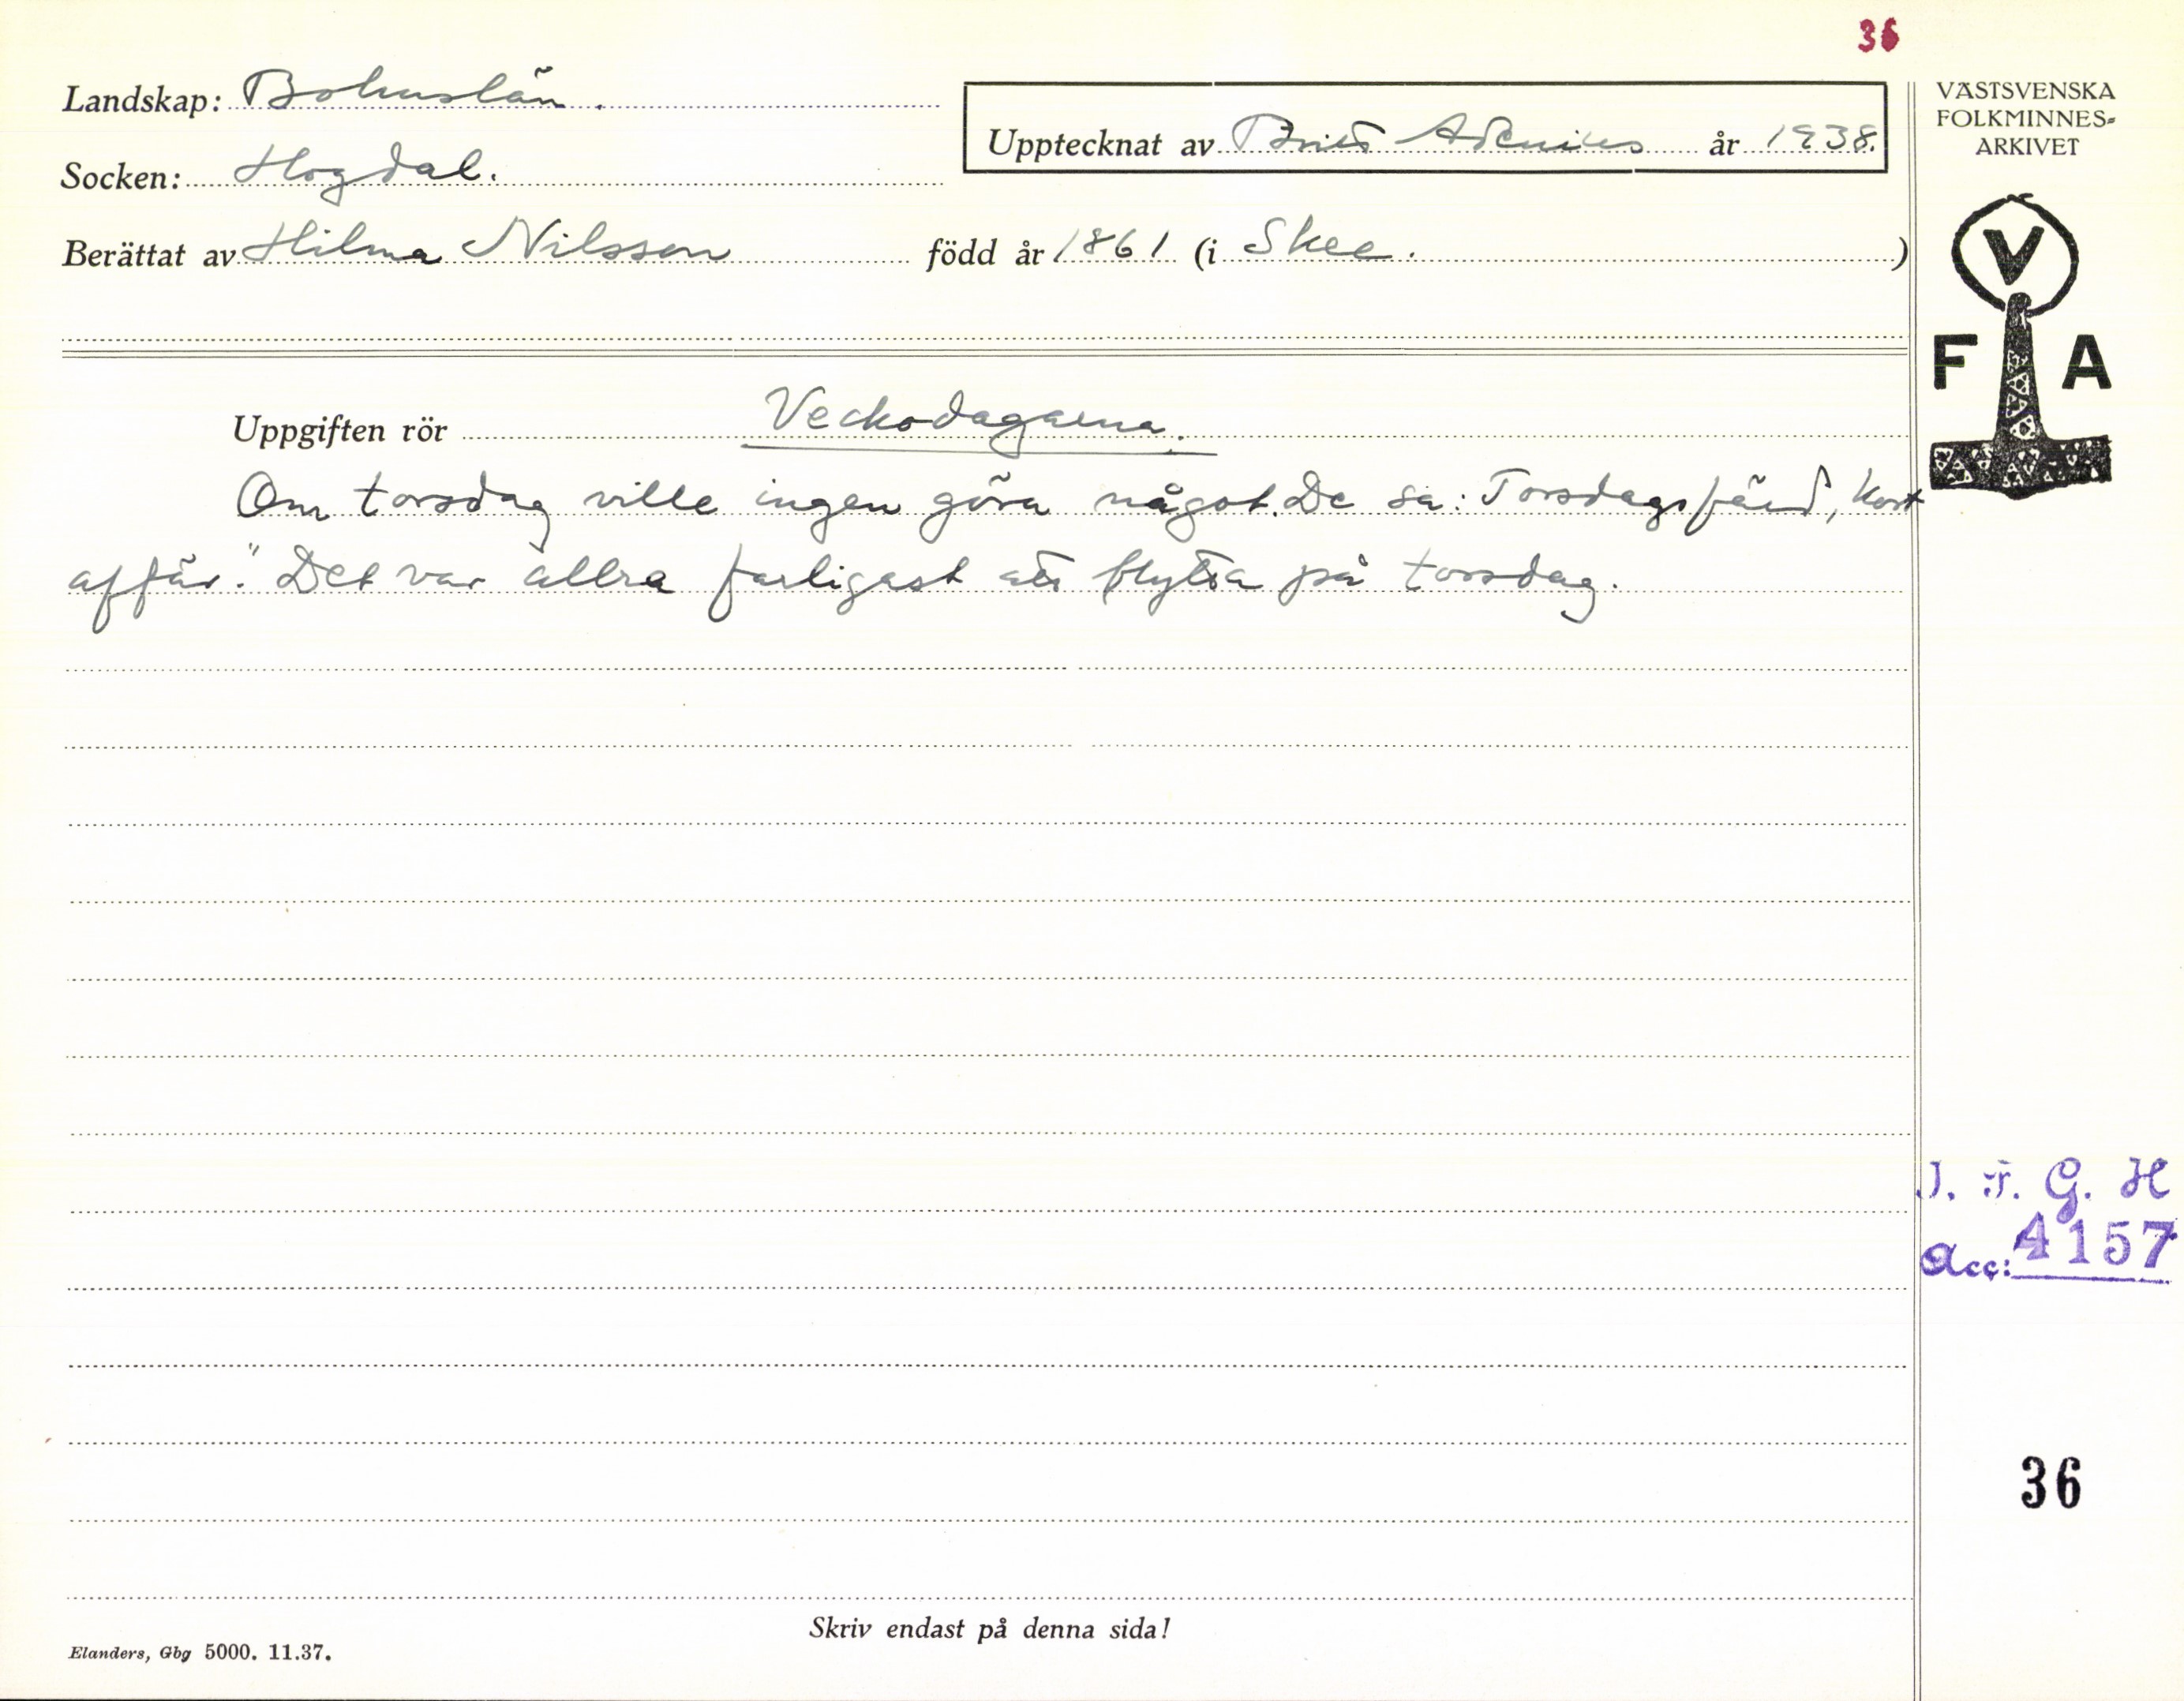 36
Landskap: Bohuslän.
Upptecknat av Britt Adenius år 1938.
Socken: Hogdal.
Berättat av Hilma Nilsson född år 1861 (i Skee.)
VÄSTSVENSKA
FOLKMINNES=
ARKIVET
V
F A
Uppgiften rör Veckodagarna.
Om torsdag ville ingen göra något. De sa: Torsdagsfärd, kort
affär." Det var allra farligast att flytta på torsdag.
I. F. G. H
Acc: 4157
36
Skriv endast på denna sida!
Elanders, Gbg 5000. 11.37.